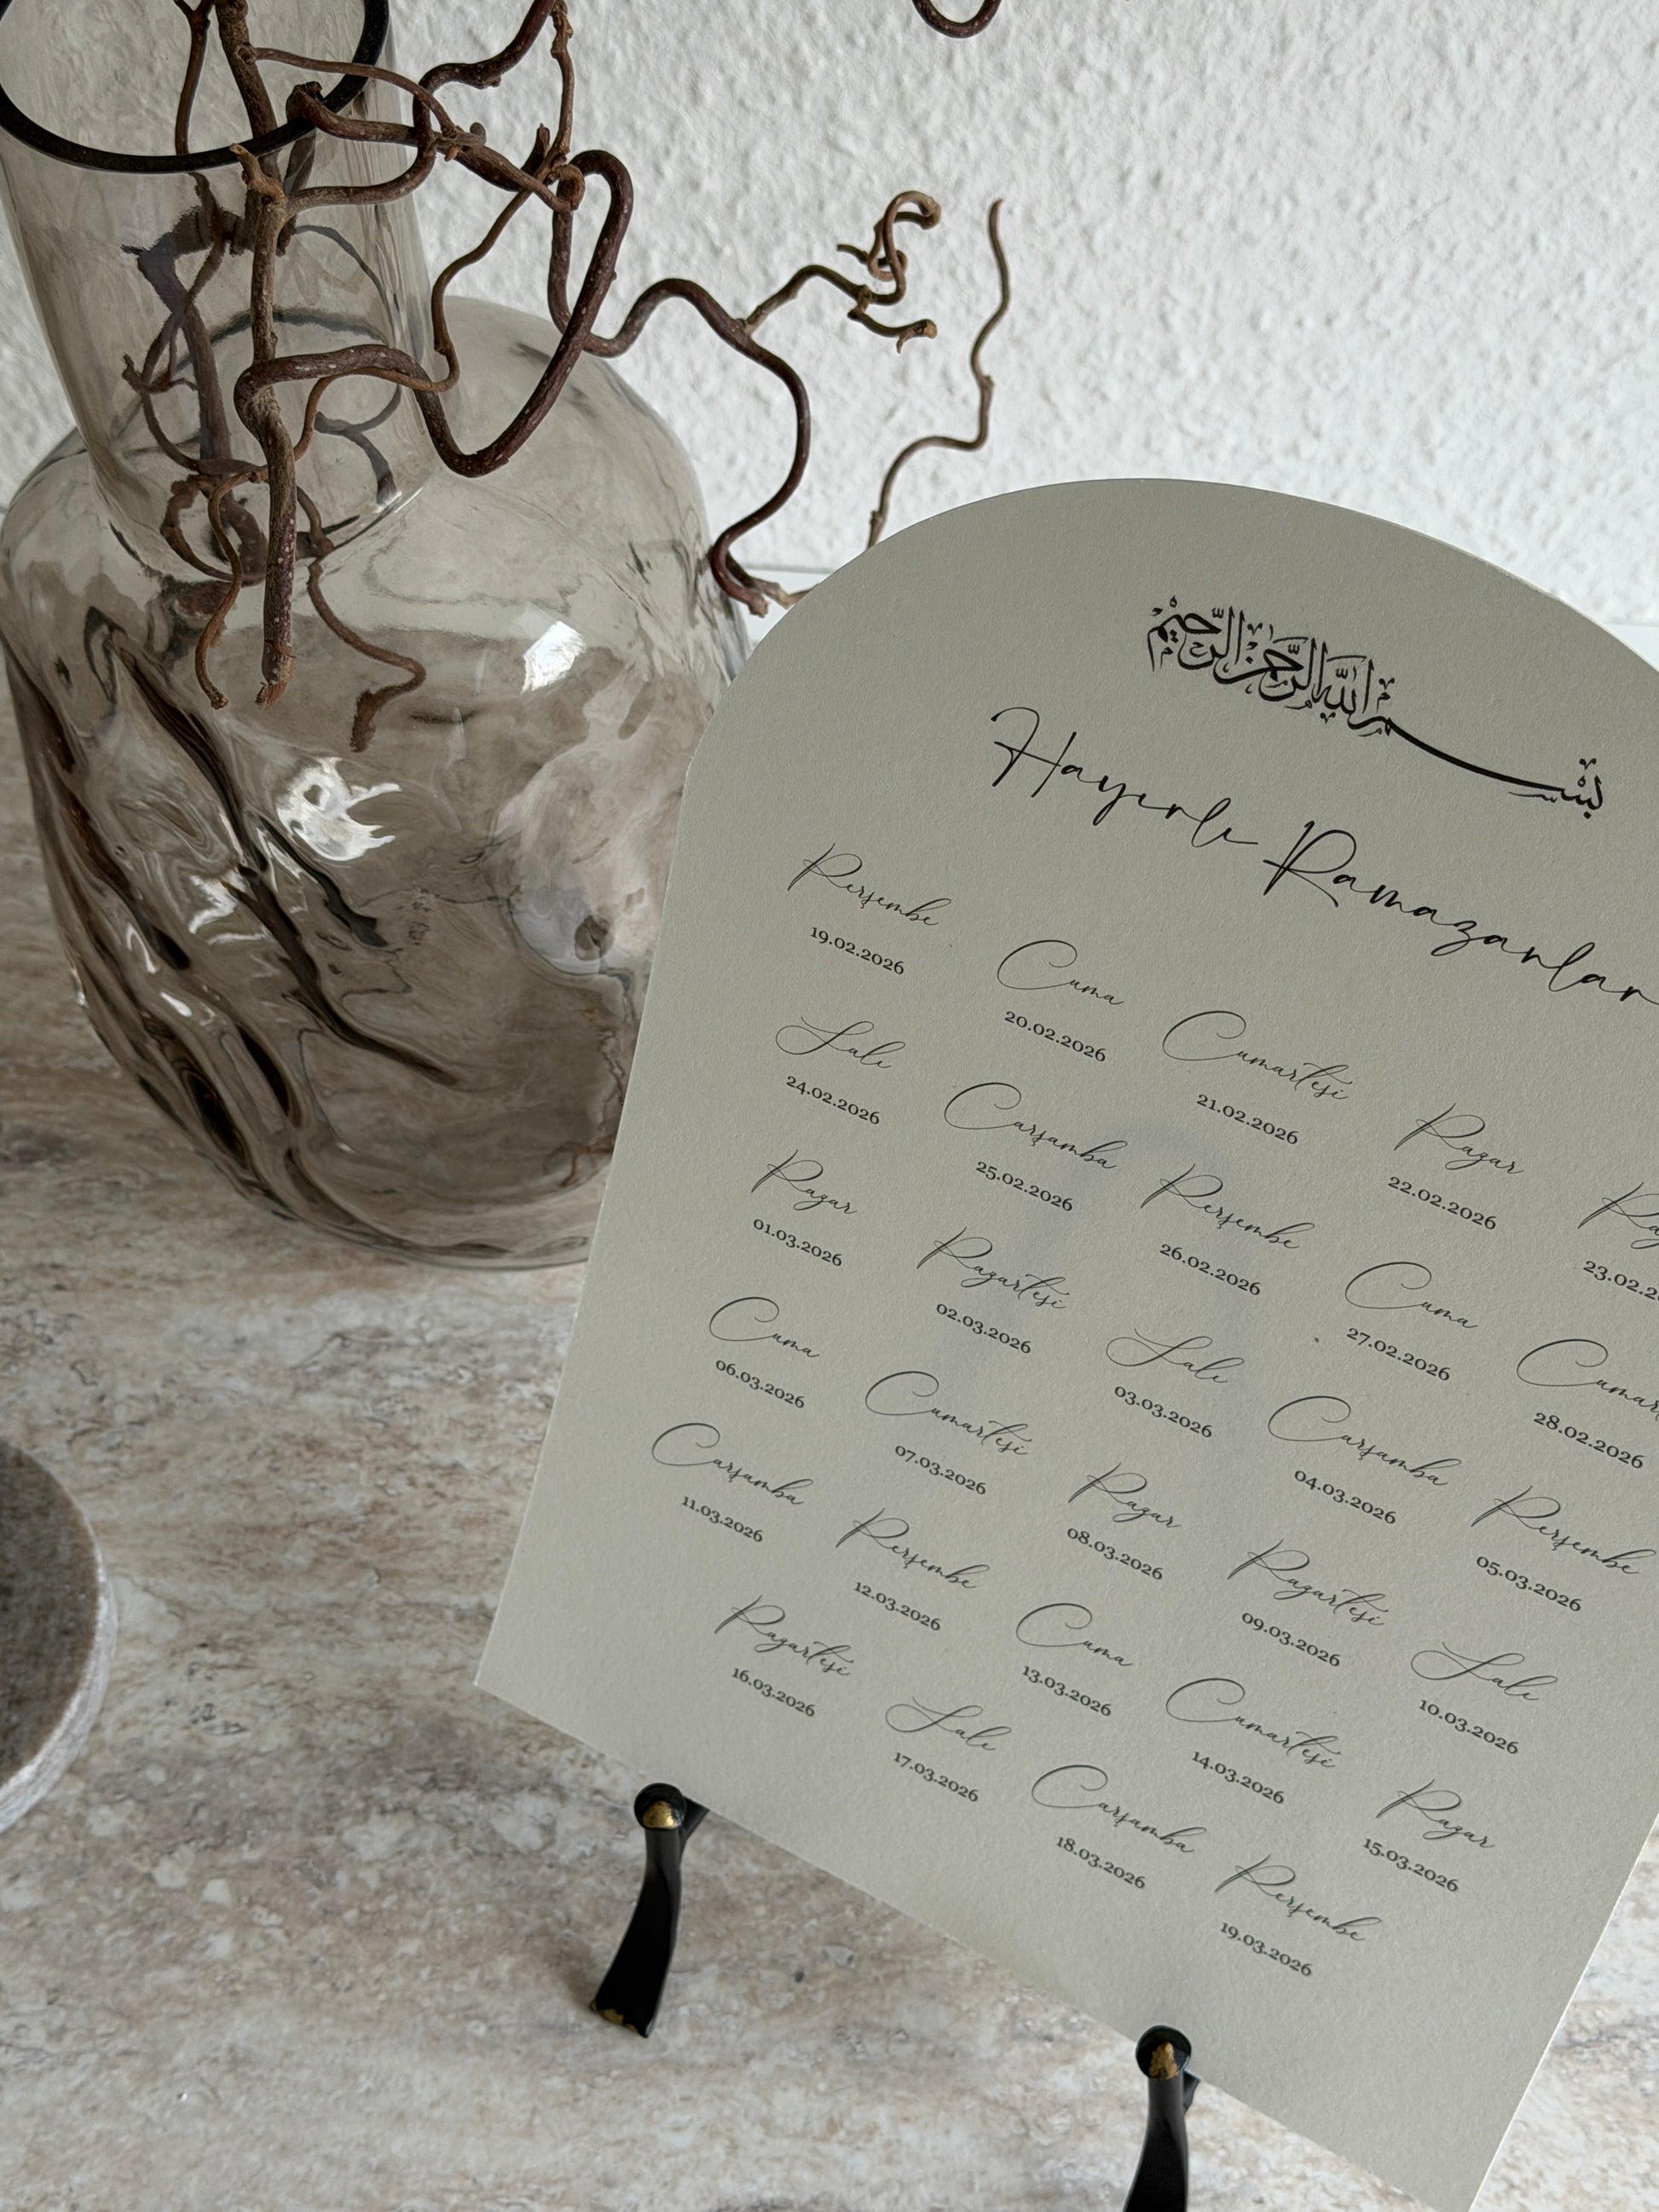 بسم الله الرحمن الرحيم
Hayırlı Ramazanlar
Perşembe Cuma Cumartesi Pazar
19.02.2026 20.02.2026 21.02.2026 22.02.2026 23.02.2
Salı Çarşamba Perşembe Cuma
24.02.2026 25.02.2026 26.02.2026 27.02.2026 28.02.2026
Pazar Pazartesi Salı Çarşamba Perşembe
01.03.2026 02.03.2026 03.03.2026 04.03.2026 05.03.2026
Cuma Cumartesi Pazar Pazartesi Salı
06.03.2026 07.03.2026 08.03.2026 09.03.2026 10.03.2026
Çarşamba Perşembe Cuma Cumartesi Pazar
11.03.2026 12.03.2026 13.03.2026 14.03.2026 15.03.2026
Pazartesi Salı Çarşamba Perşembe
16.03.2026 17.03.2026 18.03.2026 19.03.2026